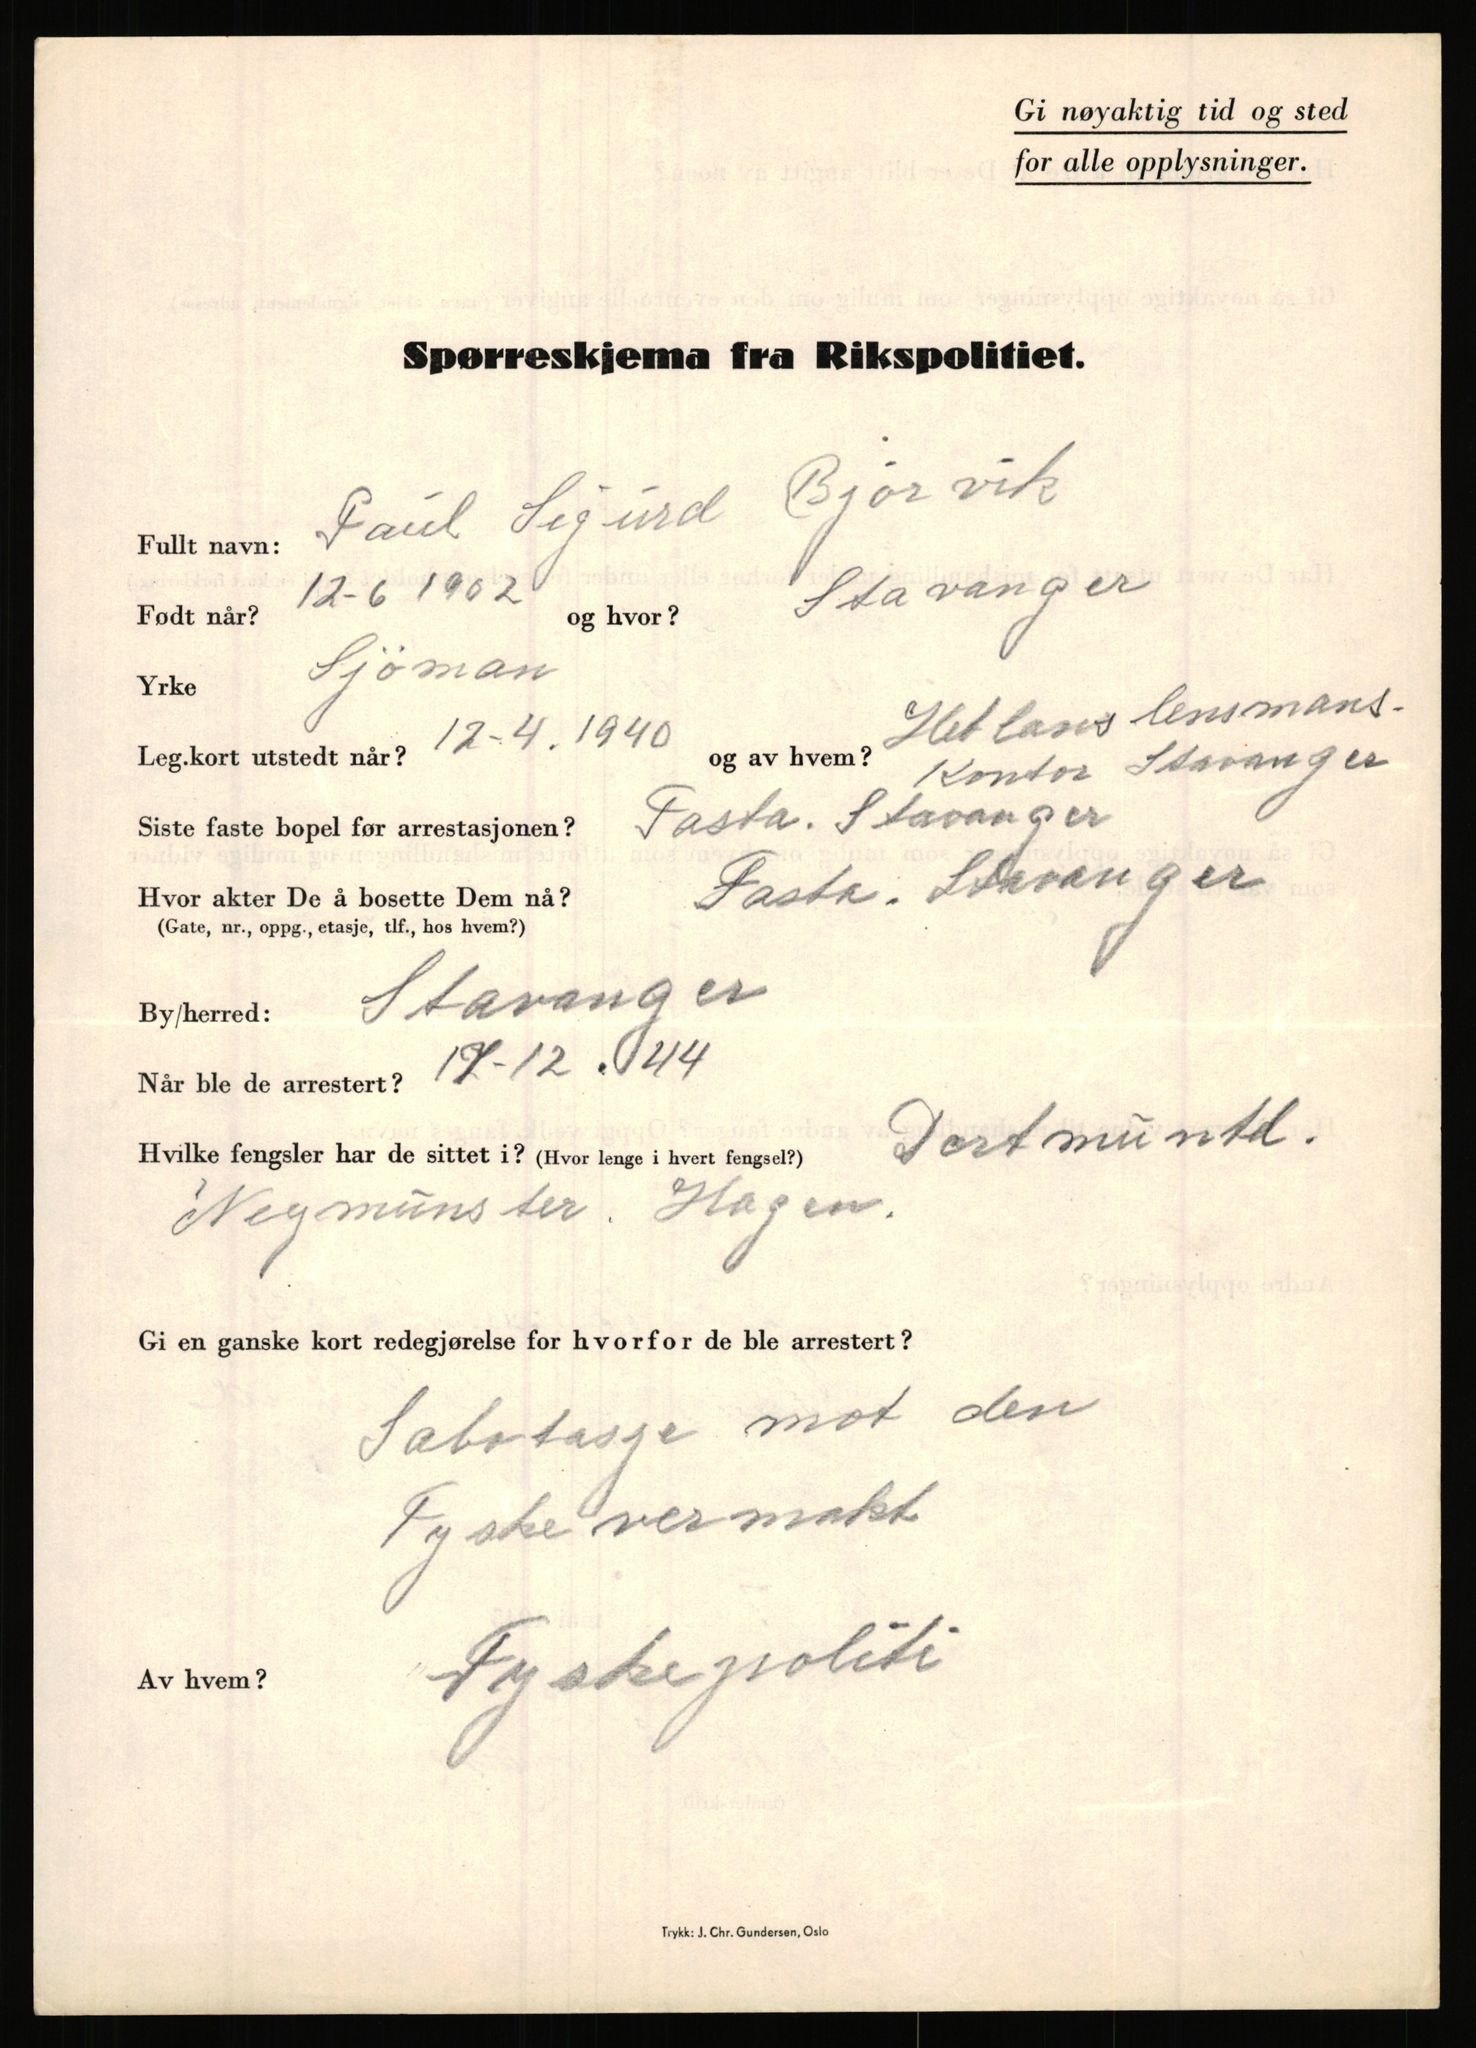 Gi nøyaktig tid og sted
for alle opplysninger.
Spørreskjema fra Rikspolitiet.
Fullt navn: Paul Sigurd Bjørvik
Født når? 12-6 1902 og hvor? Stavanger
Yrke Sjöman
Leg.kort utstedt når? 12-4. 1940 og av hvem? Hetlans lensmans-
Kontor Stavanger
Siste faste bopel før arrestasjonen? Tasta. Stavanger
Hvor akter De å bosette Dem nå? Tasta. Stavanger
(Gate, nr., oppg., etasje, tlf., hos hvem?)
By/herred: Stavanger
Når ble de arrestert? 17-12. 44
Hvilke fengsler har de sittet i? (Hvor lenge i hvert fengsel?) Dortmuntd.
Neymünster. Hagen.
Gi en ganske kort redegjørelse for hvorfor de ble arrestert?
Sabotasje mot den
Tyske vermakt
Av hvem? Tyskepoliti
Trykk: J. Chr. Gundersen, Oslo